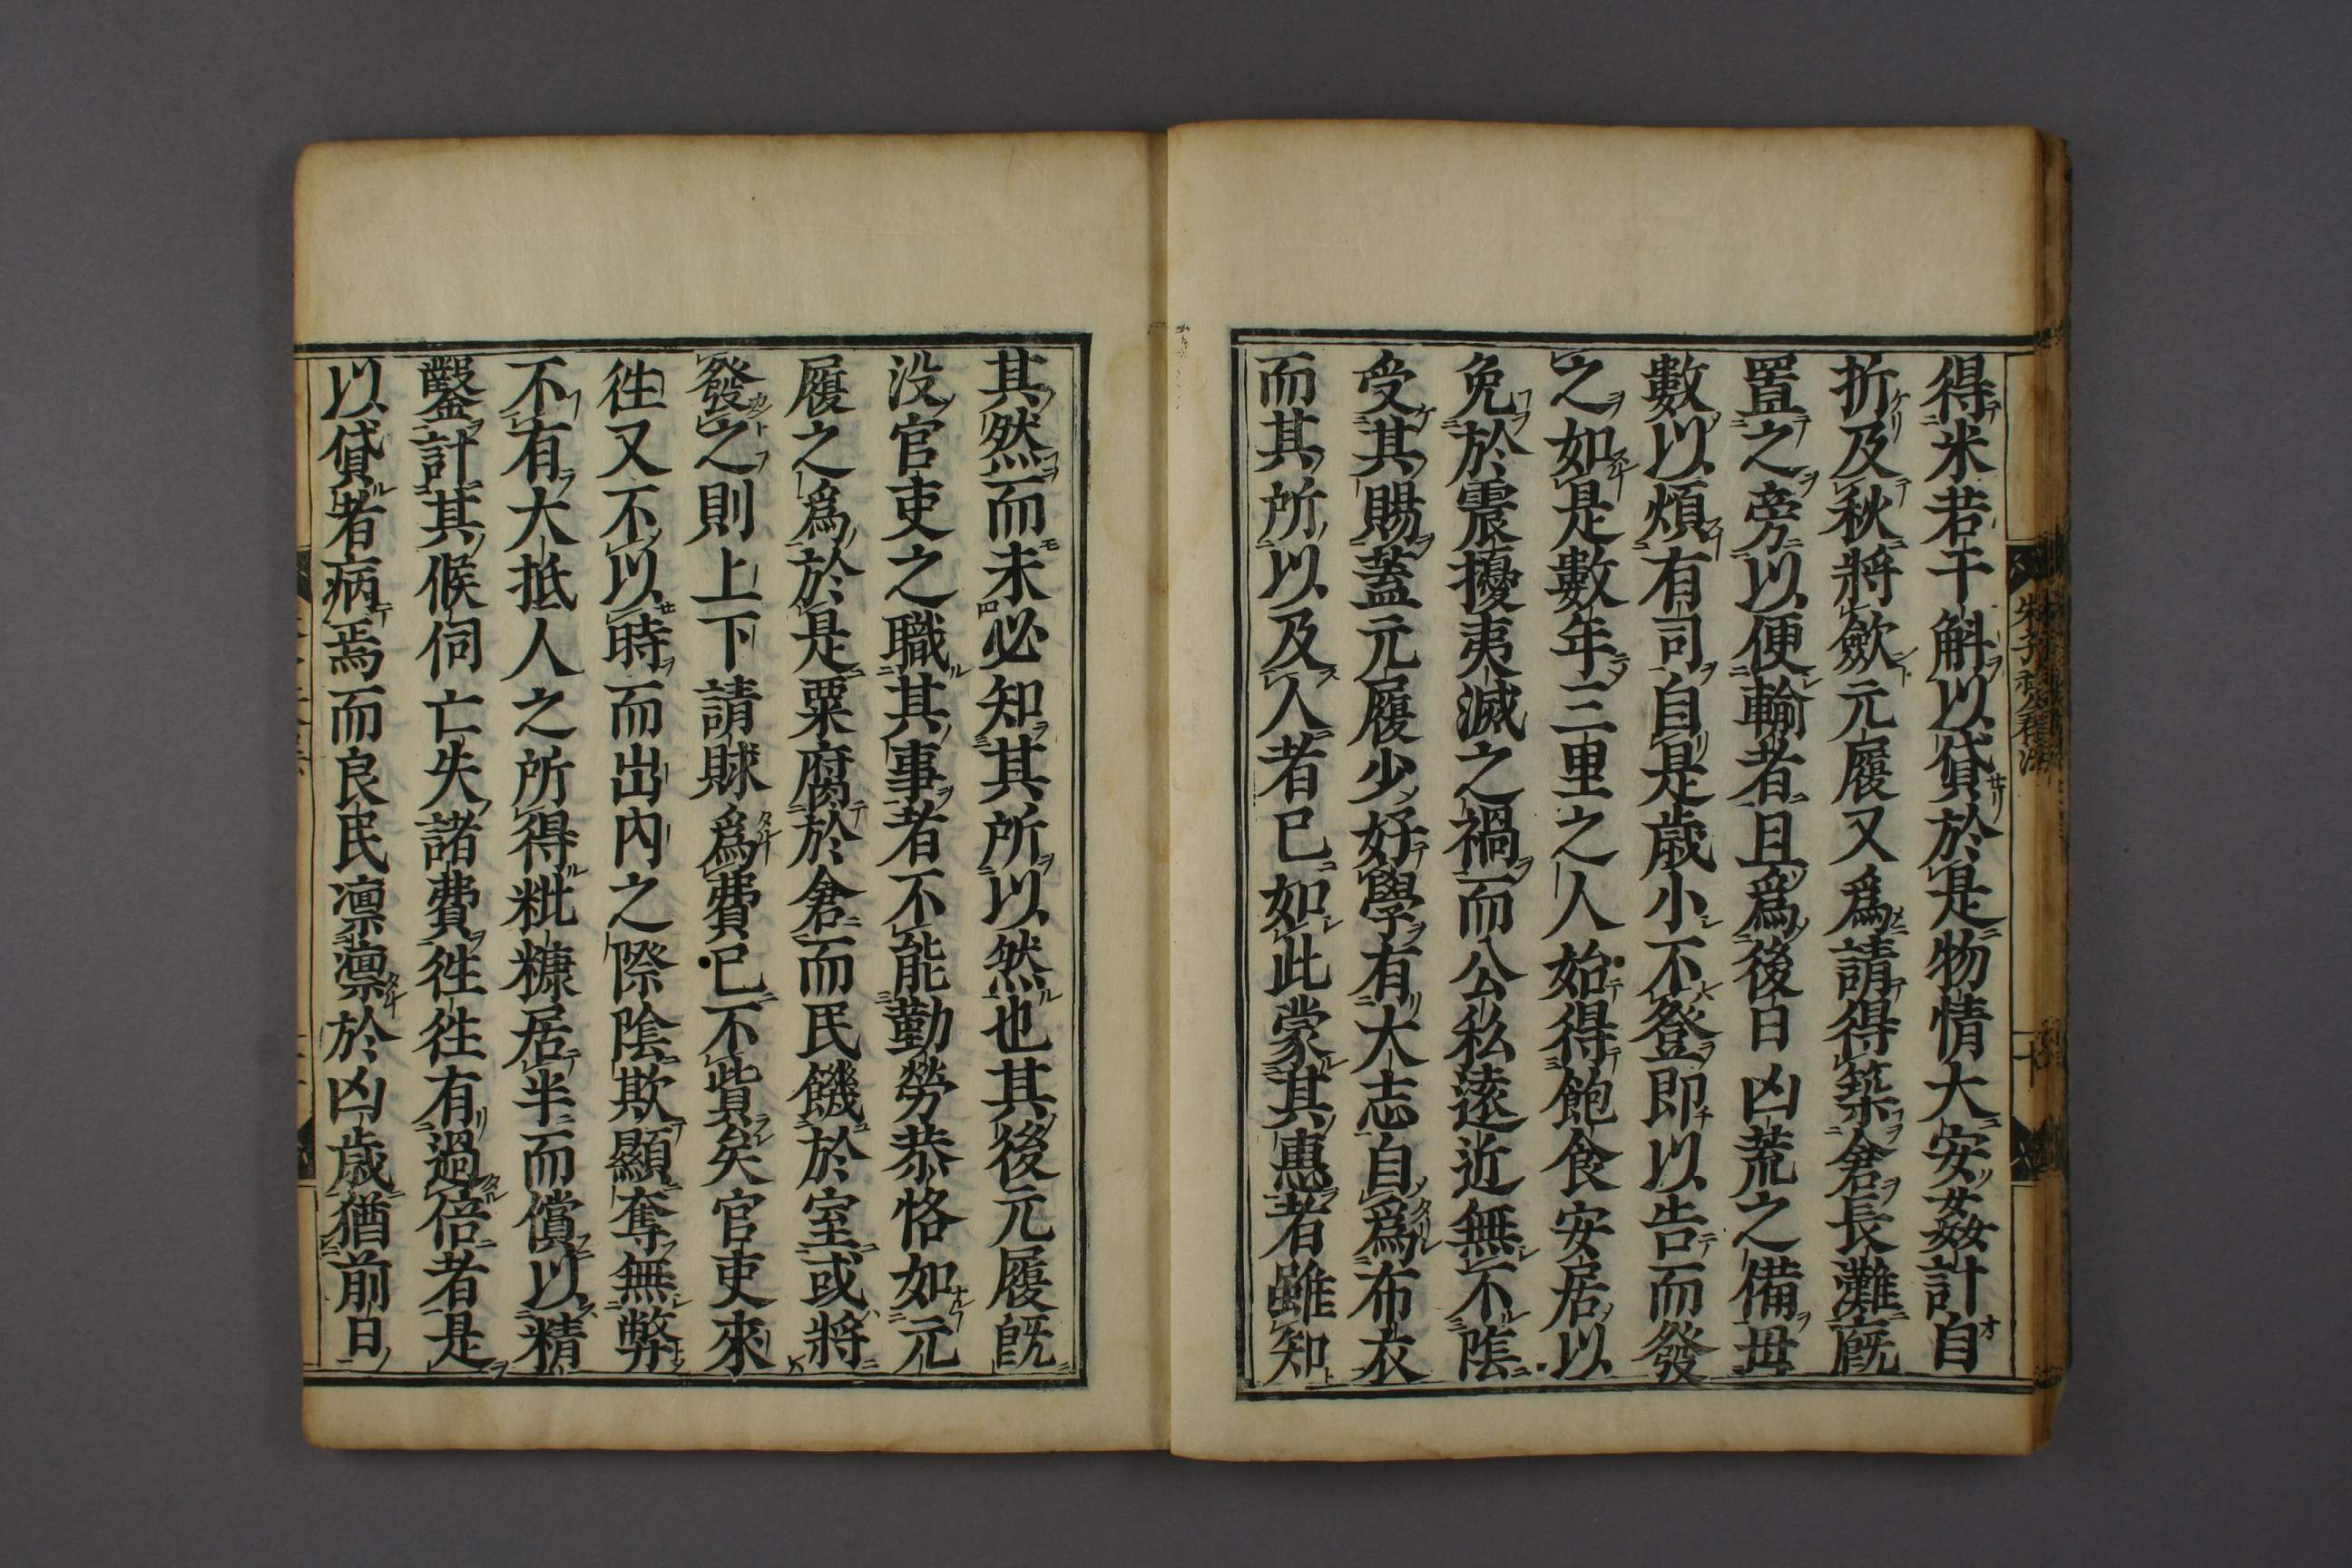 得米若干斛以貸於是物情大安姦計自
折及秋將斂元履又爲請得築倉長灘廐
置之旁以便輸者且爲後日凶荒之備毋
數以煩有司自是歳小不登即以告而發
之如是數年三里之人始得飽食安居以
免於震擾夷滅之禍而公私遠近無不陰
受其賜蓋元履少好學有大志自爲布衣
而其所以及人者已如此蒙其惠者雖知
其然而未必知其所以然也其後元履旣
沒官吏之職其事者不能勤勞恭恪如元
履之爲於是粟腐於倉而民饑於室或將
發之則上下請賕爲費已不貲矣官吏來
往又不以時而出內之際陰欺顯奪無弊
不有大抵人之所得粃糠居半而償以精
鑿計其候伺亡失諸費往往有過倍者是
以貸者病焉而良民凛凛於凶歳猶前日